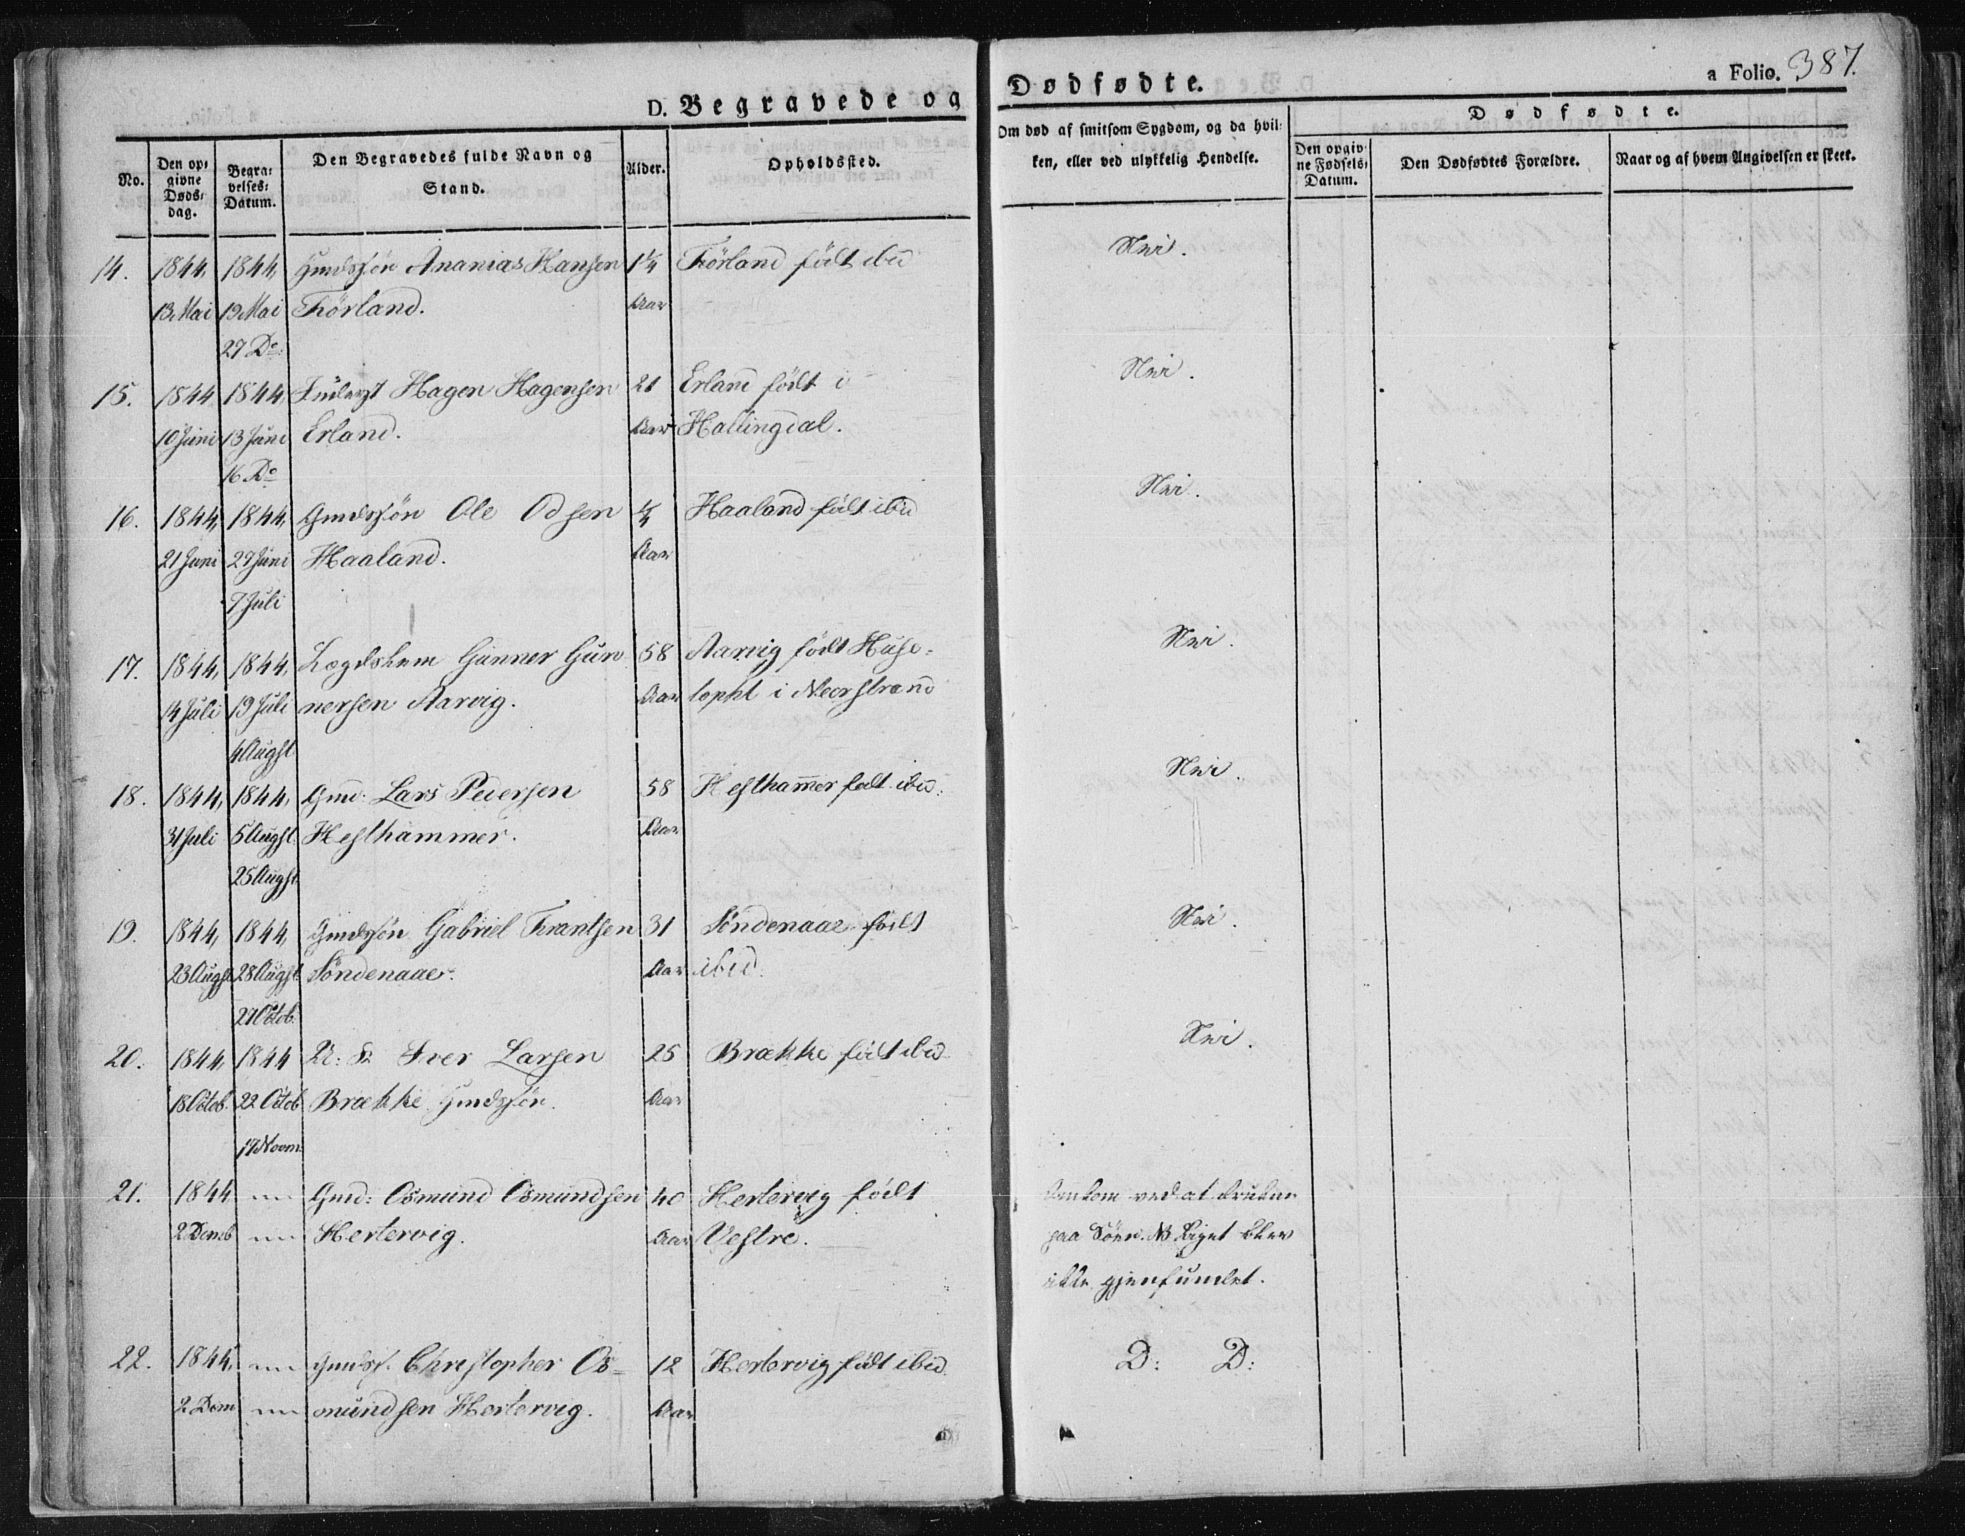 D. Begravede og Dødfødte.
a Folio. 387.
No.
Den op-
givne
Døds-
dag.
Begra-
velses-
Datum.
Den Begravedes fulde Navn og
Stand.
Alder.
Opholdssted.
Om død af smitsom Sygdom, og da hvil-
ken, eller ved ulykkelig Hendelse.
Dødfødte.
Den opgiv-
ne Fødsels-
Datum.
Den Dødfødtes Forældre.
Naar og af hvem Angivelsen er skeet.
14. 1844, 1844, Gmdssön Ananias Hansen 1¼ Förland födt ibid Nei.
13 Mai 19 Mai Förland. Aar
27 Do
15. 1844 1844 Hagen Hagensen 21 Erland födt i Nei.
10 Juni 13 Juni Erland. Aar Hallingdal.
16 Do
16. 1844, 1844, Gmdssön Ole Odsen ¼ Haaland födt ibid Nei.
21 Juni 27 Juni Haaland. Aar
7 Juli
17. 1844, 1844, Lægdslem Gunner Gun- 58 Aarvig födt Huse- Nei.
14 Juli 19 Juli nersen Aarvig. Aar topht i Neerstrand
4 Augst
18. 1844, 1844, Gmd: Lars Pedersen 58 Hesthammer födt ibid: Nei.
31 Juli 5 Augst. Hesthammer. Aar
25 Augst
19. 1844, 1844, Gmdssön Gabriel Frantsen 31 Söndenaae födt Nei.
23 Augst 28 Augst. Söndenaae. Aar ibid.
27 Octob.
20. 1844, 1844 U: K: Iver Larsen 25 Brække födt ibid Nei.
18 Octob. 22 Octob Brække Gmdssön. Aar
17 Novm:
21. 1844 Gmd: Osmund Osmundsen 40 Hertervig födt Omkom ved at drukne
2 Decmb Hertervig. Aar Vestre. paa Söen. NB Liget blev
ikke gjenfundet.
22. 1844, Gmdss. Christopher Os- 12 Hertervig födt ibid. D: D:
2 Decm mundsen Hertervig. Aar